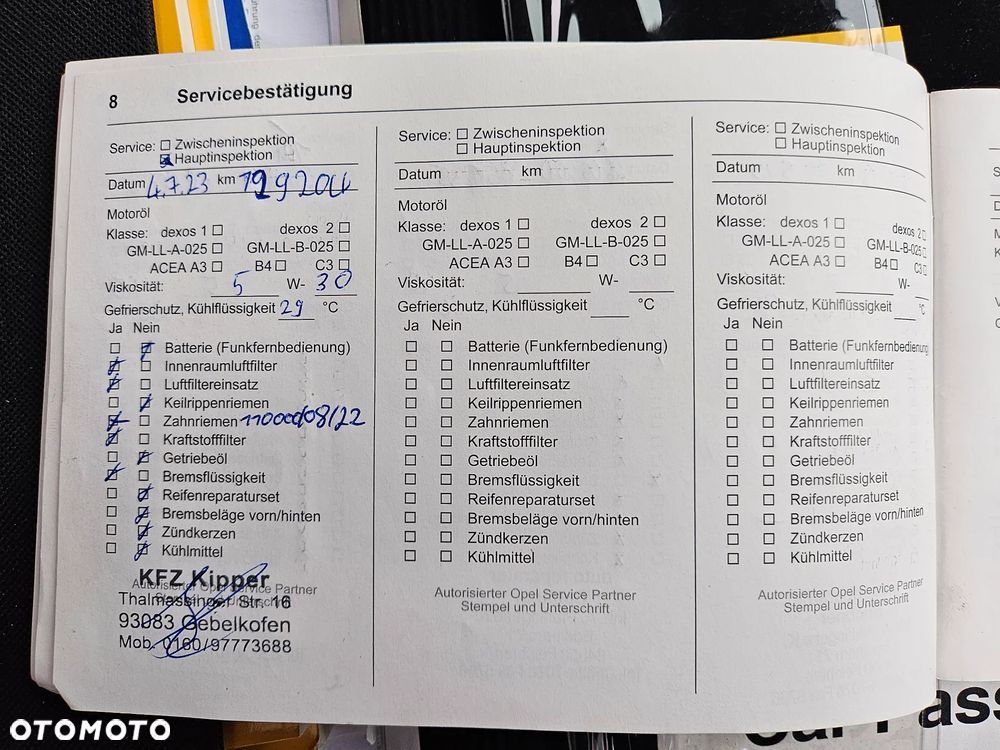 8 Servicebestätigung
Service: ☐ Zwischeninspektion
☒ Hauptinspektion
Datum 4.7.23 km
Motoröl
Klasse: dexos 1 ☐ dexos 2 ☐
GM-LL-A-025 ☐ GM-LL-B-025 ☐
ACEA A3 ☐ B4 ☐ C3 ☐
Viskosität: 5 W- 30
Gefrierschutz, Kühlflüssigkeit 29 °C
Ja Nein
☐ ☒ Batterie (Funkfernbedienung)
☒ ☐ Innenraumluftfilter
☒ ☐ Luftfiltereinsatz
☐ ☒ Keilrippenriemen
☒ ☐ Zahnriemen 08/22
☒ ☐ Kraftstofffilter
☐ ☒ Getriebeöl
☒ ☐ Bremsflüssigkeit
☐ ☒ Reifenreparaturset
☐ ☒ Bremsbeläge vorn/hinten
☐ ☒ Zündkerzen
☐ ☒ Kühlmittel
KFZ Kipper
Autorisierter Opel Service Partner
Thalmassinger Str. 16
93083 Gebelkofen
Mob. 0160/97773688
Service: ☐ Zwischeninspektion
☐ Hauptinspektion
Datum km
Motoröl
Klasse: dexos 1 ☐ dexos 2 ☐
GM-LL-A-025 ☐ GM-LL-B-025 ☐
ACEA A3 ☐ B4 ☐ C3 ☐
Viskosität: W-
Gefrierschutz, Kühlflüssigkeit °C
Ja Nein
☐ ☐ Batterie (Funkfernbedienung)
☐ ☐ Innenraumluftfilter
☐ ☐ Luftfiltereinsatz
☐ ☐ Keilrippenriemen
☐ ☐ Zahnriemen
☐ ☐ Kraftstofffilter
☐ ☐ Getriebeöl
☐ ☐ Bremsflüssigkeit
☐ ☐ Reifenreparaturset
☐ ☐ Bremsbeläge vorn/hinten
☐ ☐ Zündkerzen
☐ ☐ Kühlmittel
Autorisierter Opel Service Partner
Stempel und Unterschrift
Service: ☐ Zwischeninspektion
☐ Hauptinspektion
Datum km
Motoröl
Klasse: dexos 1 ☐ dexos 2 ☐
GM-LL-A-025 ☐ GM-LL-B-025 ☐
ACEA A3 ☐ B4 ☐ C3 ☐
Viskosität: W-
Gefrierschutz, Kühlflüssigkeit °C
Ja Nein
☐ ☐ Batterie (Funkfernbedienung)
☐ ☐ Innenraumluftfilter
☐ ☐ Luftfiltereinsatz
☐ ☐ Keilrippenriemen
☐ ☐ Zahnriemen
☐ ☐ Kraftstofffilter
☐ ☐ Getriebeöl
☐ ☐ Bremsflüssigkeit
☐ ☐ Reifenreparaturset
☐ ☐ Bremsbeläge vorn/hinten
☐ ☐ Zündkerzen
☐ ☐ Kühlmittel
Autorisierter Opel Service Partner
Stempel und Unterschrift
Car Pass
OTOMOTO